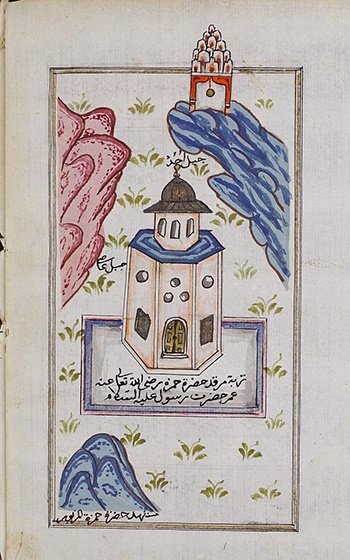 جبل احد
جبل
تربۀ مرقد حضرة حمزه رضی الله تعالی عنه
عم حضرت رسول علیه السلام
حضرة حمزة